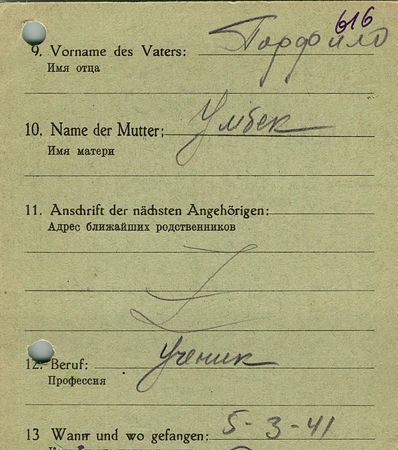 616
9. Vorname des Vaters: Порфило
Имя отца
10. Name der Mutter: Умбек
Имя матери
11. Anschrift der nächsten Angehörigen:
Адрес ближайших родственников
12. Beruf: Ученик
Профессия
13 Wann und wo gefangen: 5-3-41